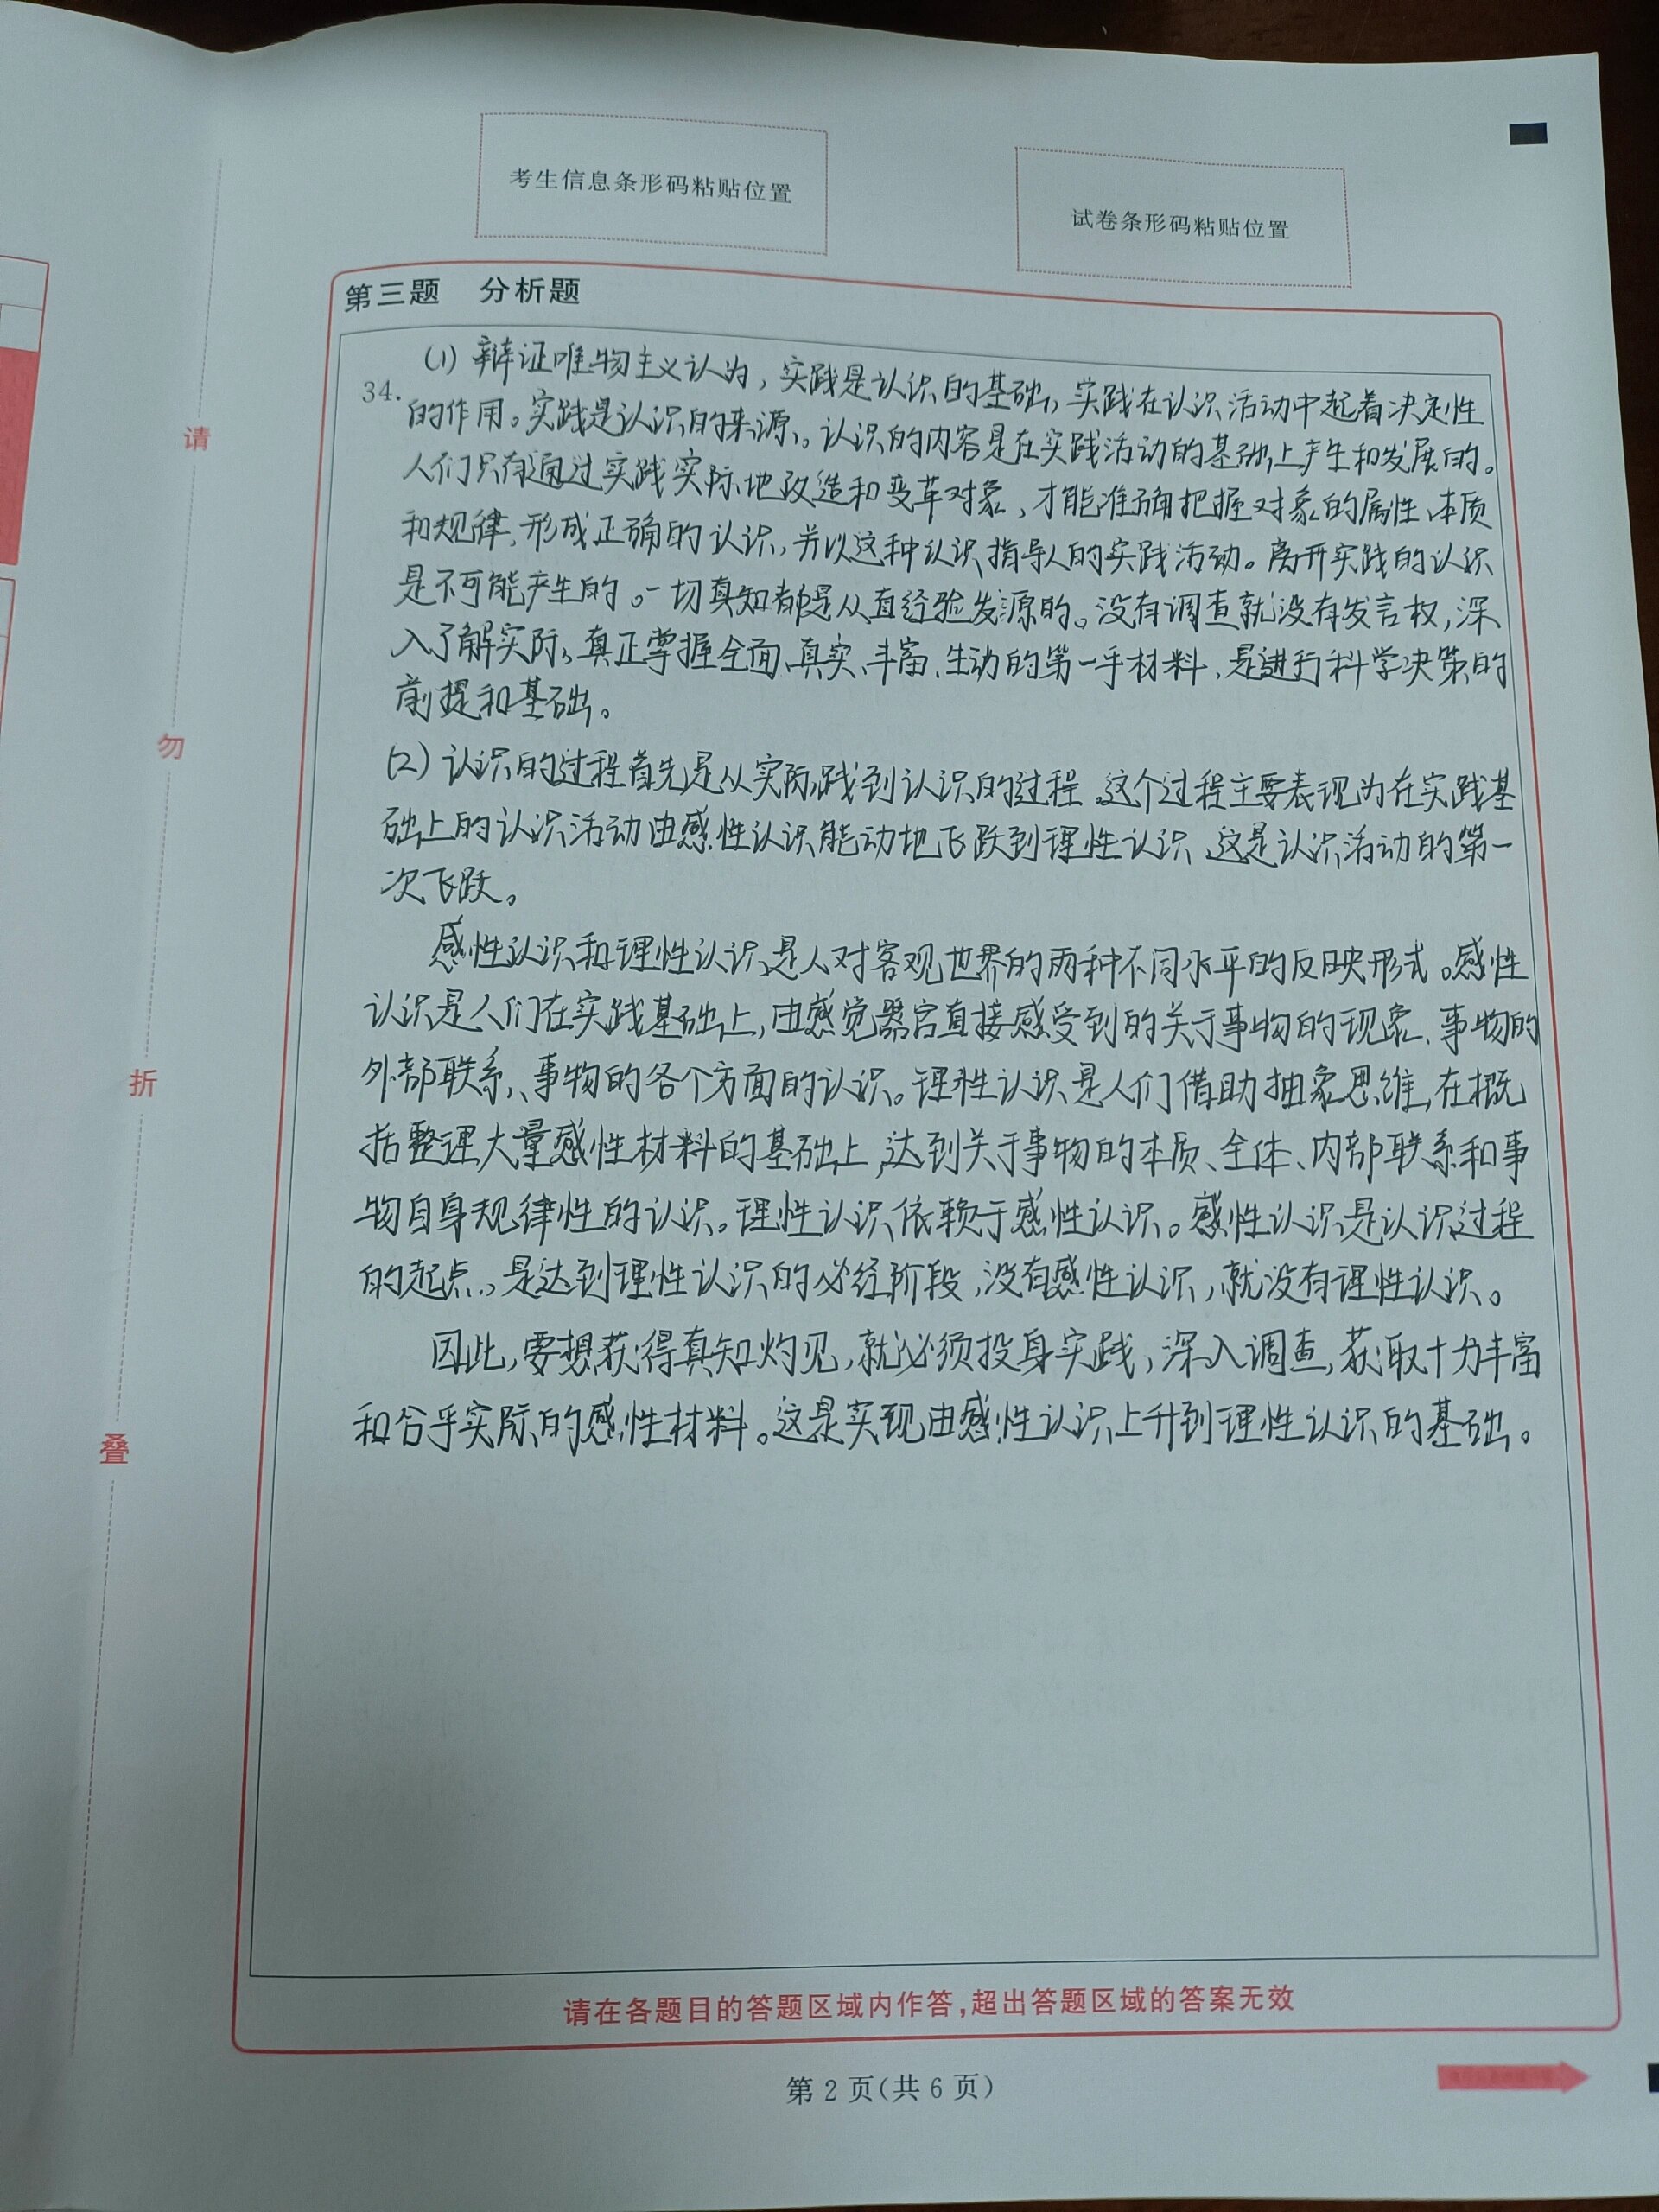 考生信息条形码粘贴位置
试卷条形码粘贴位置
第三题 分析题
34.
(1) 辩证唯物主义认为，实践是认识的基础，实践在认识活动中起着决定性
的作用。实践是认识的来源。认识的内容是在实践活动的基础上产生和发展的。
人们只有通过实践实际地改造和变革对象，才能准确把握对象的属性、本质
和规律，形成正确的认识，并以这种认识指导人的实践活动。离开实践的认识
是不可能产生的。一切真知都是从直经验发源的。没有调查就没有发言权，深
入了解实际，真正掌握全面、真实、丰富、生动的第一手材料，是进行科学决策的
前提和基础。
(2) 认识的过程首先是从实际践到认识的过程。这个过程主要表现为在实践基
础上的认识活动由感性认识能动地飞跃到理性认识，这是认识活动的第一
次飞跃。
感性认识和理性认识是人对客观世界的两种不同水平的反映形式。感性
认识是人们在实践基础上，由感觉器官直接感受到的关于事物的现象、事物的
外部联系、事物的各个方面的认识。理性认识是人们借助抽象思维，在概
括整理大量感性材料的基础上，达到关于事物的本质、全体、内部联系和事
物自身规律性的认识。理性认识依赖于感性认识。感性认识是认识过程
的起点，是达到理性认识的必经阶段，没有感性认识，就没有理性认识。
因此，要想获得真知灼见，就必须投身实践，深入调查，获取十分丰富
和合乎实际的感性材料。这是实现由感性认识上升到理性认识的基础。
请
勿
折
叠
请在各题目的答题区域内作答，超出答题区域的答案无效
第 2 页（共 6 页）